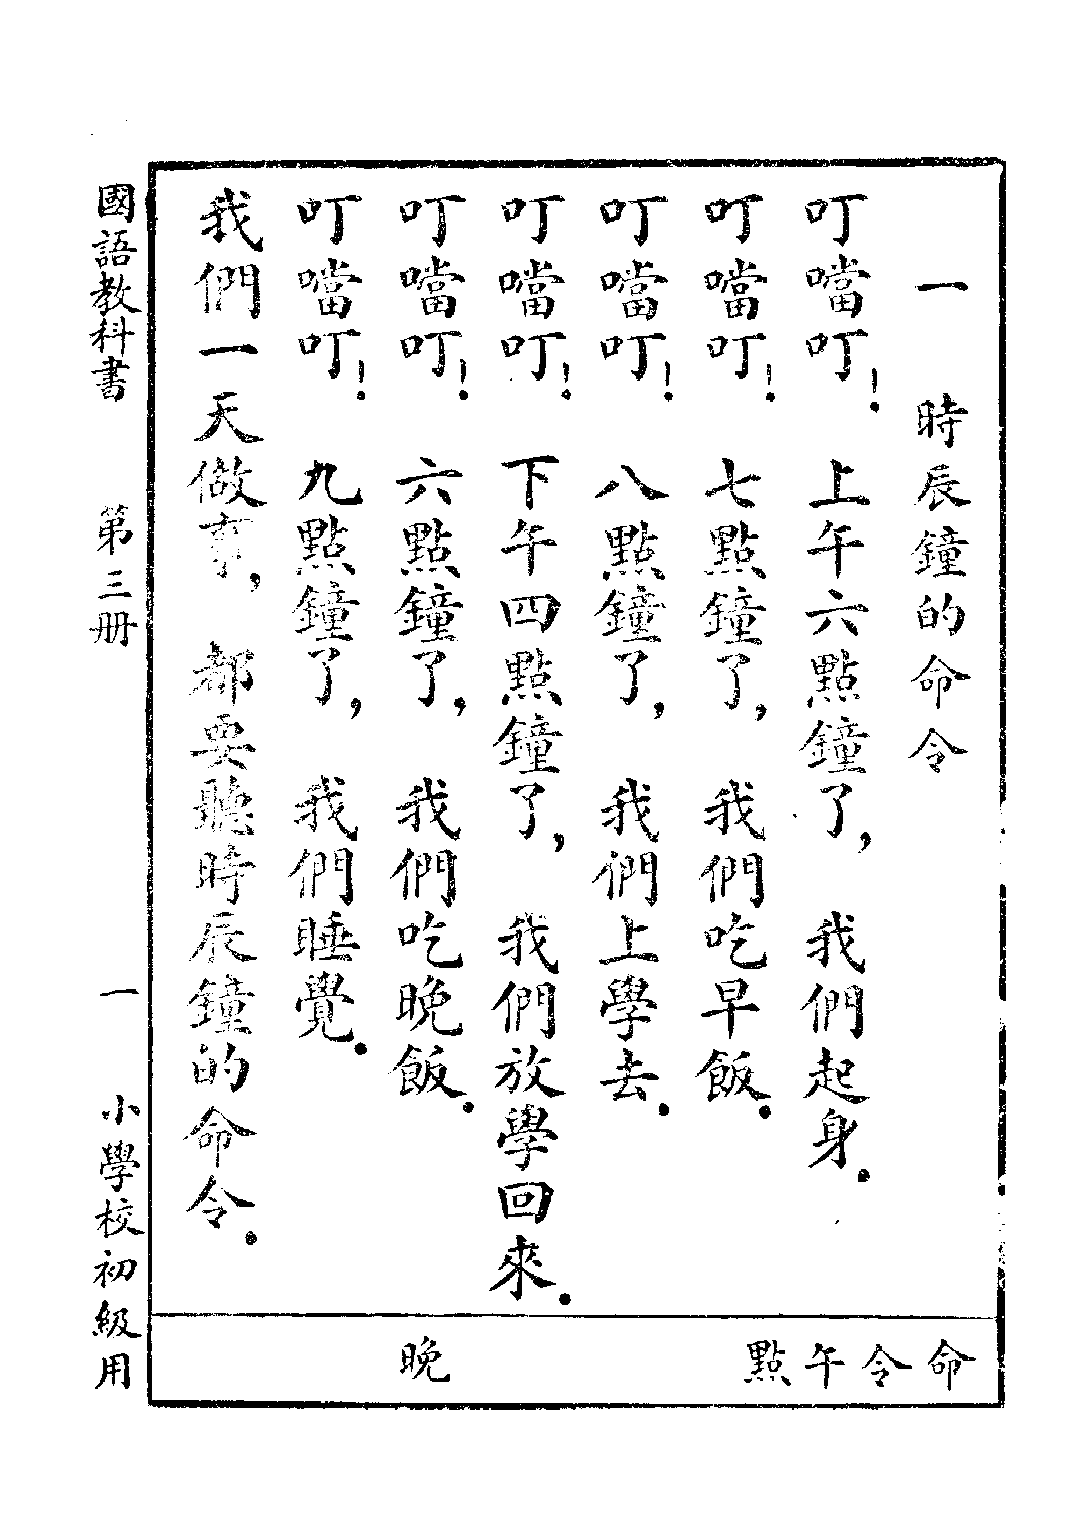 一　時辰鐘的命令
叮噹叮！　上午六點鐘了，　我們起身．
叮噹叮！　七點鐘了，　我們吃早飯．
叮噹叮！　八點鐘了，　我們上學去．
叮噹叮！　下午四點鐘了，　我們放學回來．
叮噹叮！　六點鐘了，　我們吃晚飯．
叮噹叮！　九點鐘了，　我們睡覺．
我們一天做事，　都要聽時辰鐘的命令．
命令午點　晚
國語教科書　第三册　一　小學校初級用